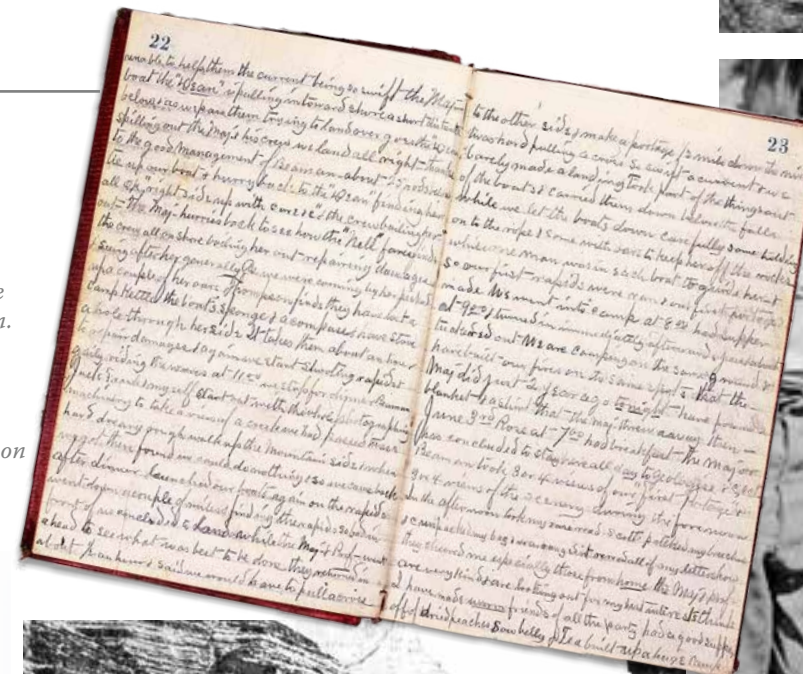 e
n.
on
22
unable to help them the current being so swift the Maj-
boat the "Dean" is pulling in toward shore a short distance
below & as we pass them trying to land over goes the "Dean"
spilling out the Maj & his crew we land all right - thanks
to the good management of Beaman - about 25 rods below
tie up our boat & hurry back to the "Dean" finding her
all "sky" right side up with care & the crew bailing her
out - The Maj - hurries back to see how the "Nell" fares finds
the crew all on shore bailing her out - repairing damages
& seeing after her generally As we were coming by her picked
up a couple of her oars Thompson finds they have lost a
camp kettle the boat's sponge & a compass & have stove
a hole through her side It takes them about an hour
to repair damages & again we start shooting rapids &
gaily riding the waves at 11 we stop for dinner Beaman
& myself start out with the photographing
machinery to take a view of a creek we had passed after a
hard dreary rough walk up the Mountain side when
we got there found we could do nothing & so we came back
after dinner launched our boats again on the rapids
went down a couple of miles & finding the rapids so bad in
front of us concluded to land while the Maj & Prof - went
ahead to see what was best to be done they returned in
about ½ an hour & said we would have to pull across
23
to the other side & make a portage ½ mile down the river
twas hard pulling across so swift a current & we
barely made a landing Took part of the things out
of the boats & carried them down below the falls
while we let the boats down carefully some holding
on to the rope & some with oars to keep her off the rocks
while one man was in each boat to guide her &
so our first rapids were ran & our first portage
made We went into camp at 8 had supper
at 9 & turned in immediately afterwards
tuckered out We are camping on the same ground &
have built our fires on the same spots that the
Maj did just 2 years ago to night - have found a
blanket & a shirt that the Maj threw away then -
June 3rd Rose at 7 had breakfast - the Maj
has concluded to stay here all day to geologize &
Beaman took 3 or 4 views of our first portage &
3 or 4 views of the scenery during the forenoon
in the afternoon took my some read Scott patched my breeches
& unpacked my bag & read all of my letters how
they cheered me especially those from home the Maj & Prof -
are very kind & are looking out for my best interests I think
I have made warm friends of all the party had a good supper
off of dried peaches sow belly & built up a huge